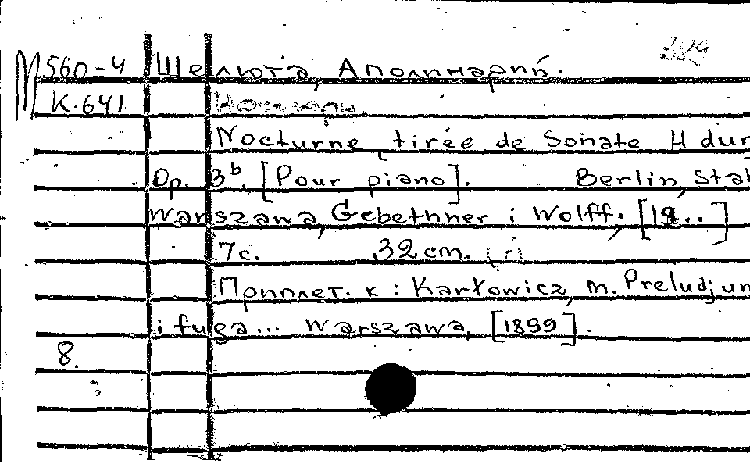 М 560-4 Шелюта, Аполинарий.
К.641
Nocturne, tirée de Sonate H dur
Op. 3b, [Pour piano]. Berlin, Stah
Warszawa, Gebethner i Wolff, [18..]
7с. 32 cm. (г)
Приплет. к: Karłowicz, M. Preludjum
i fuga... Warszawa, [1899].
8.